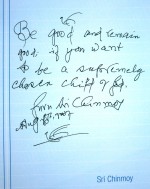 Be good and remain
good, if you want
to be a supremely
chosen child of God.
Sri Chinmoy
Sri Chinmoy